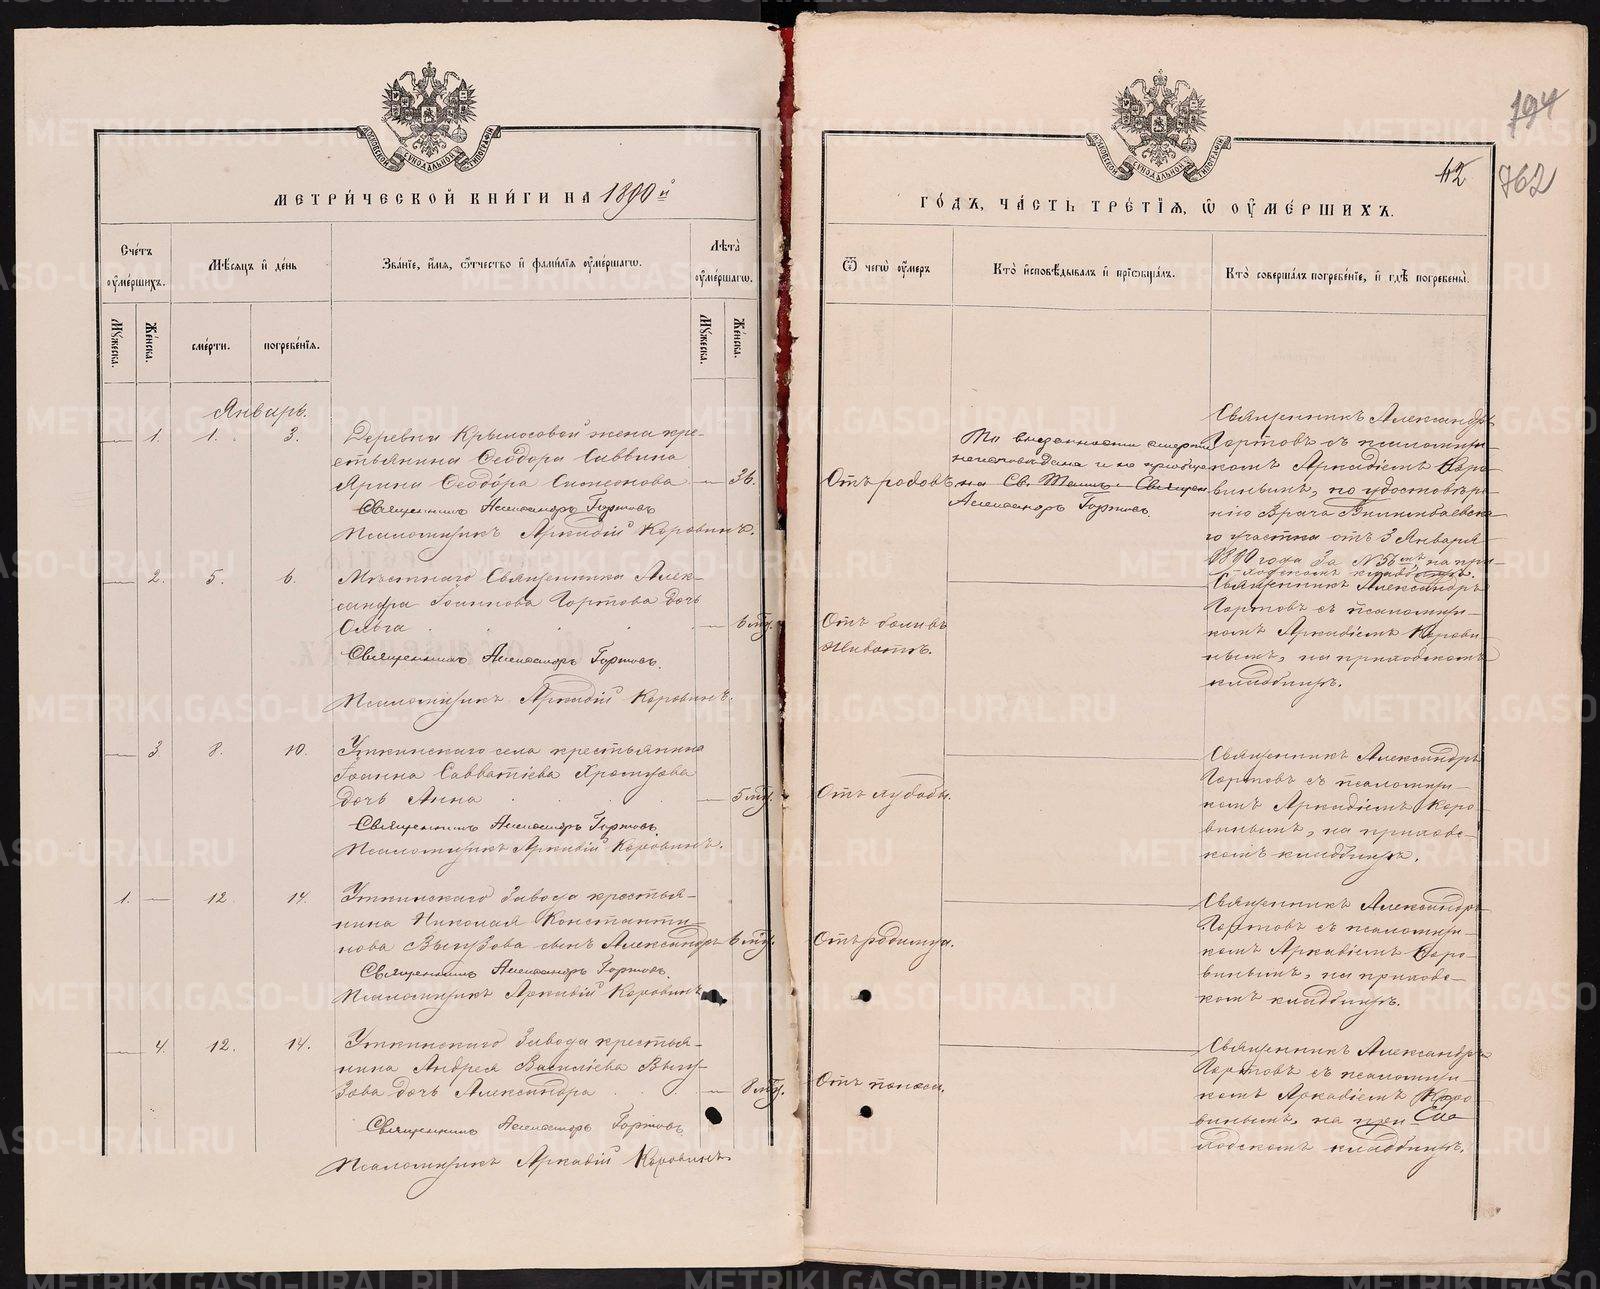 МОСКОВСКОЙ СУНОДАЛЬНОЙ ТИПОГРАФІИ
МЕТРИ́ЧЕСКОЙ КНИ́ГИ НА 1890й
Сче́тъ оу҆ме́ршихъ.
Мѣ́сяцъ и҆ де́нь
Зва́нїе, и҆́мѧ, ѻ҆́тчество и҆ фами́лїѧ оу҆ме́ршагѡ.
Лѣ̑та оу҆ме́ршагѡ.
Му́жеска.
Же́нска.
сме́рти.
погребе́нїѧ.
Му́жеска.
Же́нска.
Январь.
— 1. 1. 3. Деревни Крылосовой жена кре-
стьянина Ѳеодора Саввина
Ярина Ѳеодора Симеонова — 36.
Священникъ Александръ Гортовъ
Псаломщикъ Аркадій Коровинъ.
— 2. 5. 6. Мѣстнаго Священника Алек-
сандра Іоаннова Гортова дочь
Ольга — 6 мѣс.
Священникъ Александръ Гортовъ.
Псаломщикъ Аркадій Коровинъ.
— 3. 8. 10. Уткинскаго села крестьянина
Іоанна Савватіева Храмцова
дочь Анна — 5 мѣс.
Священникъ Александръ Гортовъ.
Псаломщикъ Аркадій Коровинъ.
1. — 12 14. Уткинскаго Завода крестья-
нина Николая Константи-
нова Вызова сынъ Александръ 6 мѣс.
Священникъ Александръ Гортовъ.
Псаломщикъ Аркадій Коровинъ
— 4. 12. 14. Уткинскаго Завода крестья-
нина Андрея Василіева
дочь Александра — 8 мѣс.
Священникъ Александръ Гортовъ
Псаломщикъ Аркадій Коровинъ.
МОСКОВСКОЙ СУНОДАЛЬНОЙ ТИПОГРАФІИ
194
42
762
ГО́ДЪ, ЧА́СТЬ ТРЕ́ТЇѦ, Ѡ҆ ОУ҆МЕ́РШИХЪ.
Ѿ чегѡ̀ оу҆́меръ
Кто̀ и҆сповѣ́дывалъ и҆ прїѡбща́лъ.
Кто̀ соверша́лъ погребе́нїе, и҆ гдѣ̀ погребены̀.
Отъ родовъ
По внезапности смерти
неисповѣдана и не
Св. Таинъ Священ.
Александръ Гортовъ.
Священникъ Александръ
Гортовъ съ псаломщи-
комъ Аркадіемъ Коро-
винымъ, по удостовѣре-
нію Врача
го участка отъ 3 Января
1890 года за №
на при-
ходскомъ кладбищѣ.
Отъ боли въ
животѣ.
Священникъ Александръ
Гортовъ съ псаломщи-
комъ Аркадіемъ Корови-
нымъ, на приходскомъ
кладбищѣ.
Отъ худобы.
Священникъ Александръ
Гортовъ съ псаломщи-
комъ Аркадіемъ Коро-
винымъ, на приход-
скомъ кладбищѣ.
Отъ родимца.
Священникъ Александръ
Гортовъ съ псаломщи-
комъ Аркадіемъ Коро-
винымъ, на приход-
скомъ кладбищѣ.
Отъ поноса.
Священникъ Александръ
Гортовъ съ псаломщи-
комъ Аркадіемъ Коро-
винымъ, на при-
ходскомъ кладбищѣ.
METRIKI.GASO-URAL.RU